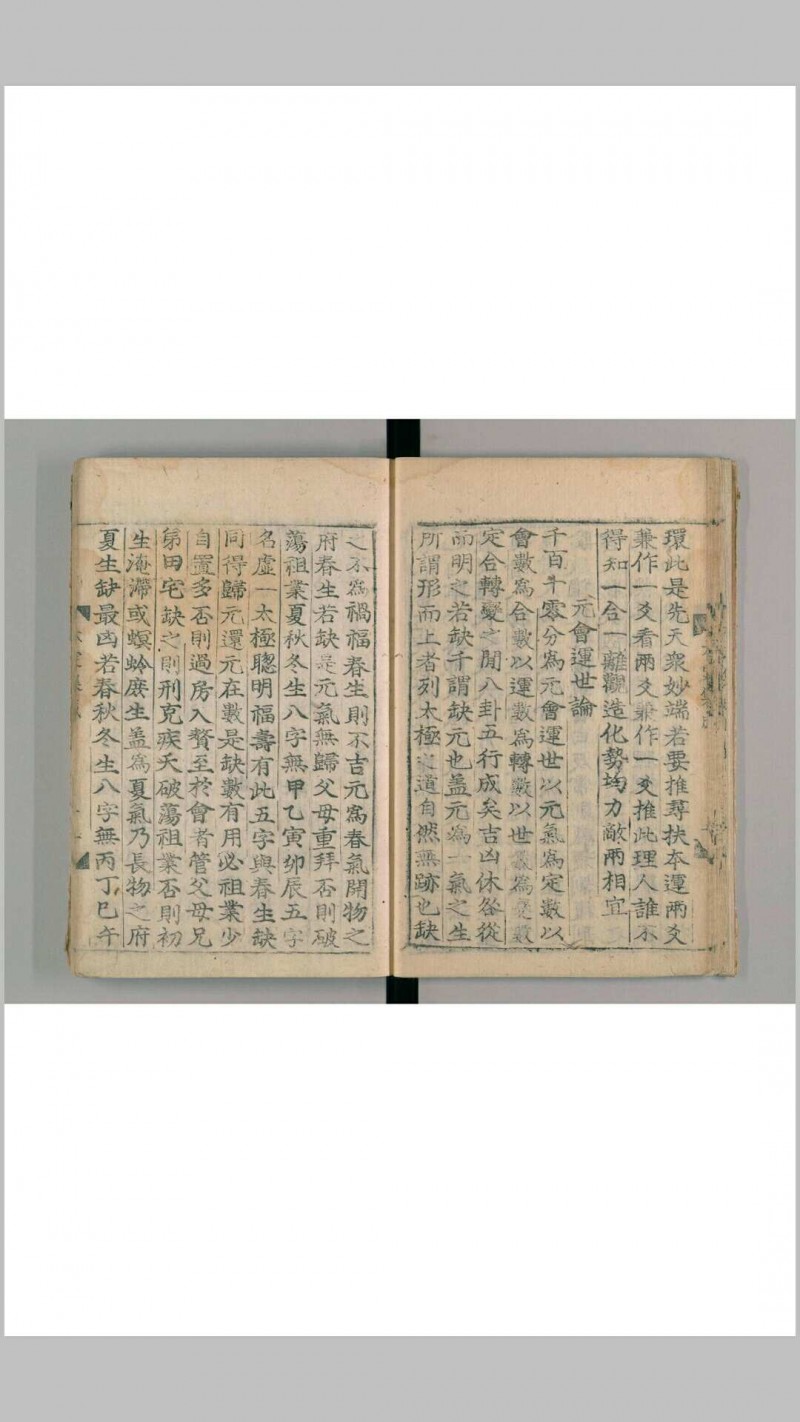 環此是先天衆妙端若要推尋扶本運兩爻
兼作一爻看兩爻兼作一爻推此理人誰不
得知一合一離觀造化勢均力敵兩相宜
元會運世論
千百十零分為元會運世以元氣為定數以
會數為合數以運數為轉數以世數為變數
定合轉變之間八卦五行成矣吉凶休咎從
而明之若缺千謂缺元也盖元為一氣之生
所謂形而上者列太極之道自然無跡也缺
之不為禍福春生則不吉元為春氣開物之
府春生若缺是元氣無歸父母重拜否則破
蕩祖業夏秋冬生八字無甲乙寅卯辰五字
名虛一太極聰明福壽有此五字與春生缺
同得歸元還元在數是缺數有用必祖業少
自置多否則過房入贅至於會者管父母兄
弟田宅缺之則刑克疾夭破蕩祖業否則初
生淹滯或螟蛉庶生盖為夏氣乃長物之府
夏生缺最凶若春秋冬生八字無丙丁巳午